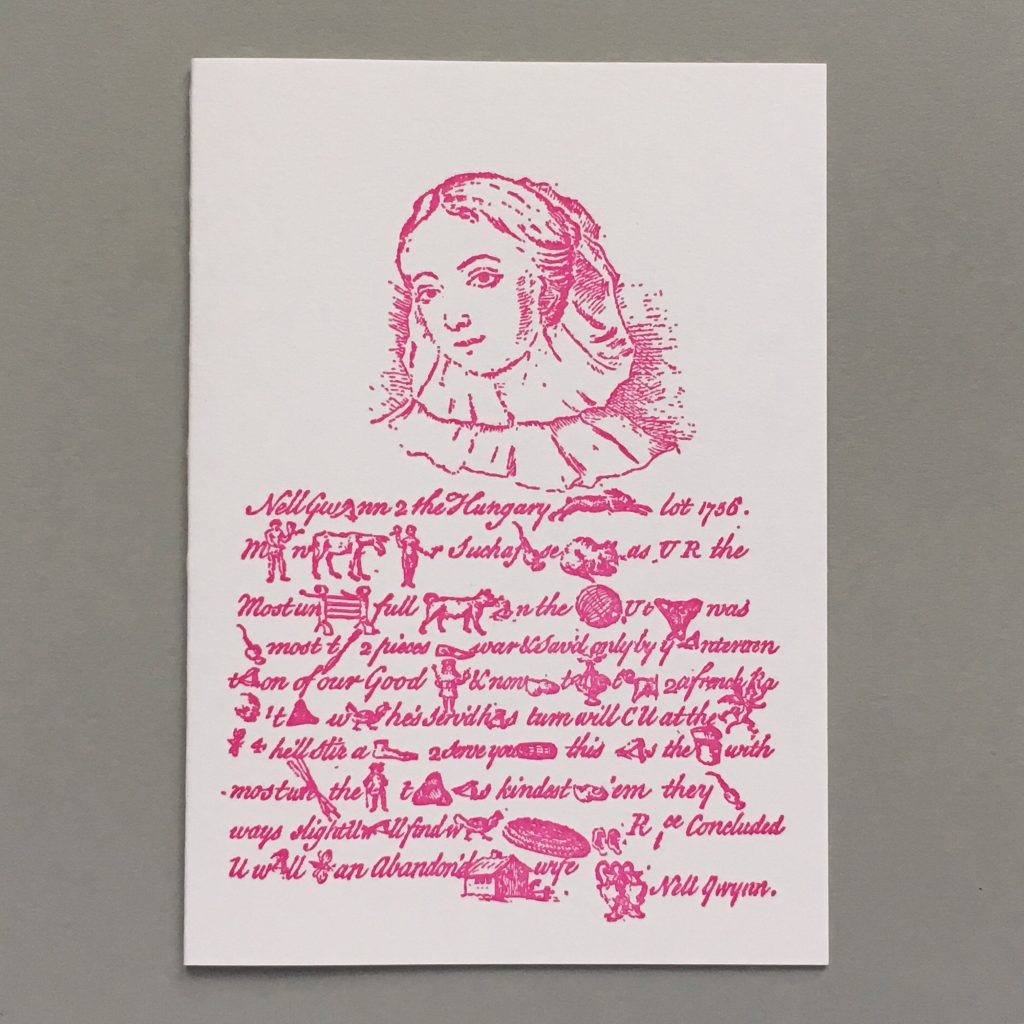 Nell Gwynn 2 the Hungary lot 1756.
M n r Such a se as U R the
Most un full n the U t was
most t 2 pieces war & Sav'd only by y
t on of our Good & now t t 2 a french
't w he's serv'd his turn will C U at the
4 he'll Stir a 2 serve you this s the with
most un the t s kindest 'em they
ways slight ll find w R Concluded
U w ll an Abandon'd wife
Nell Gwynn.